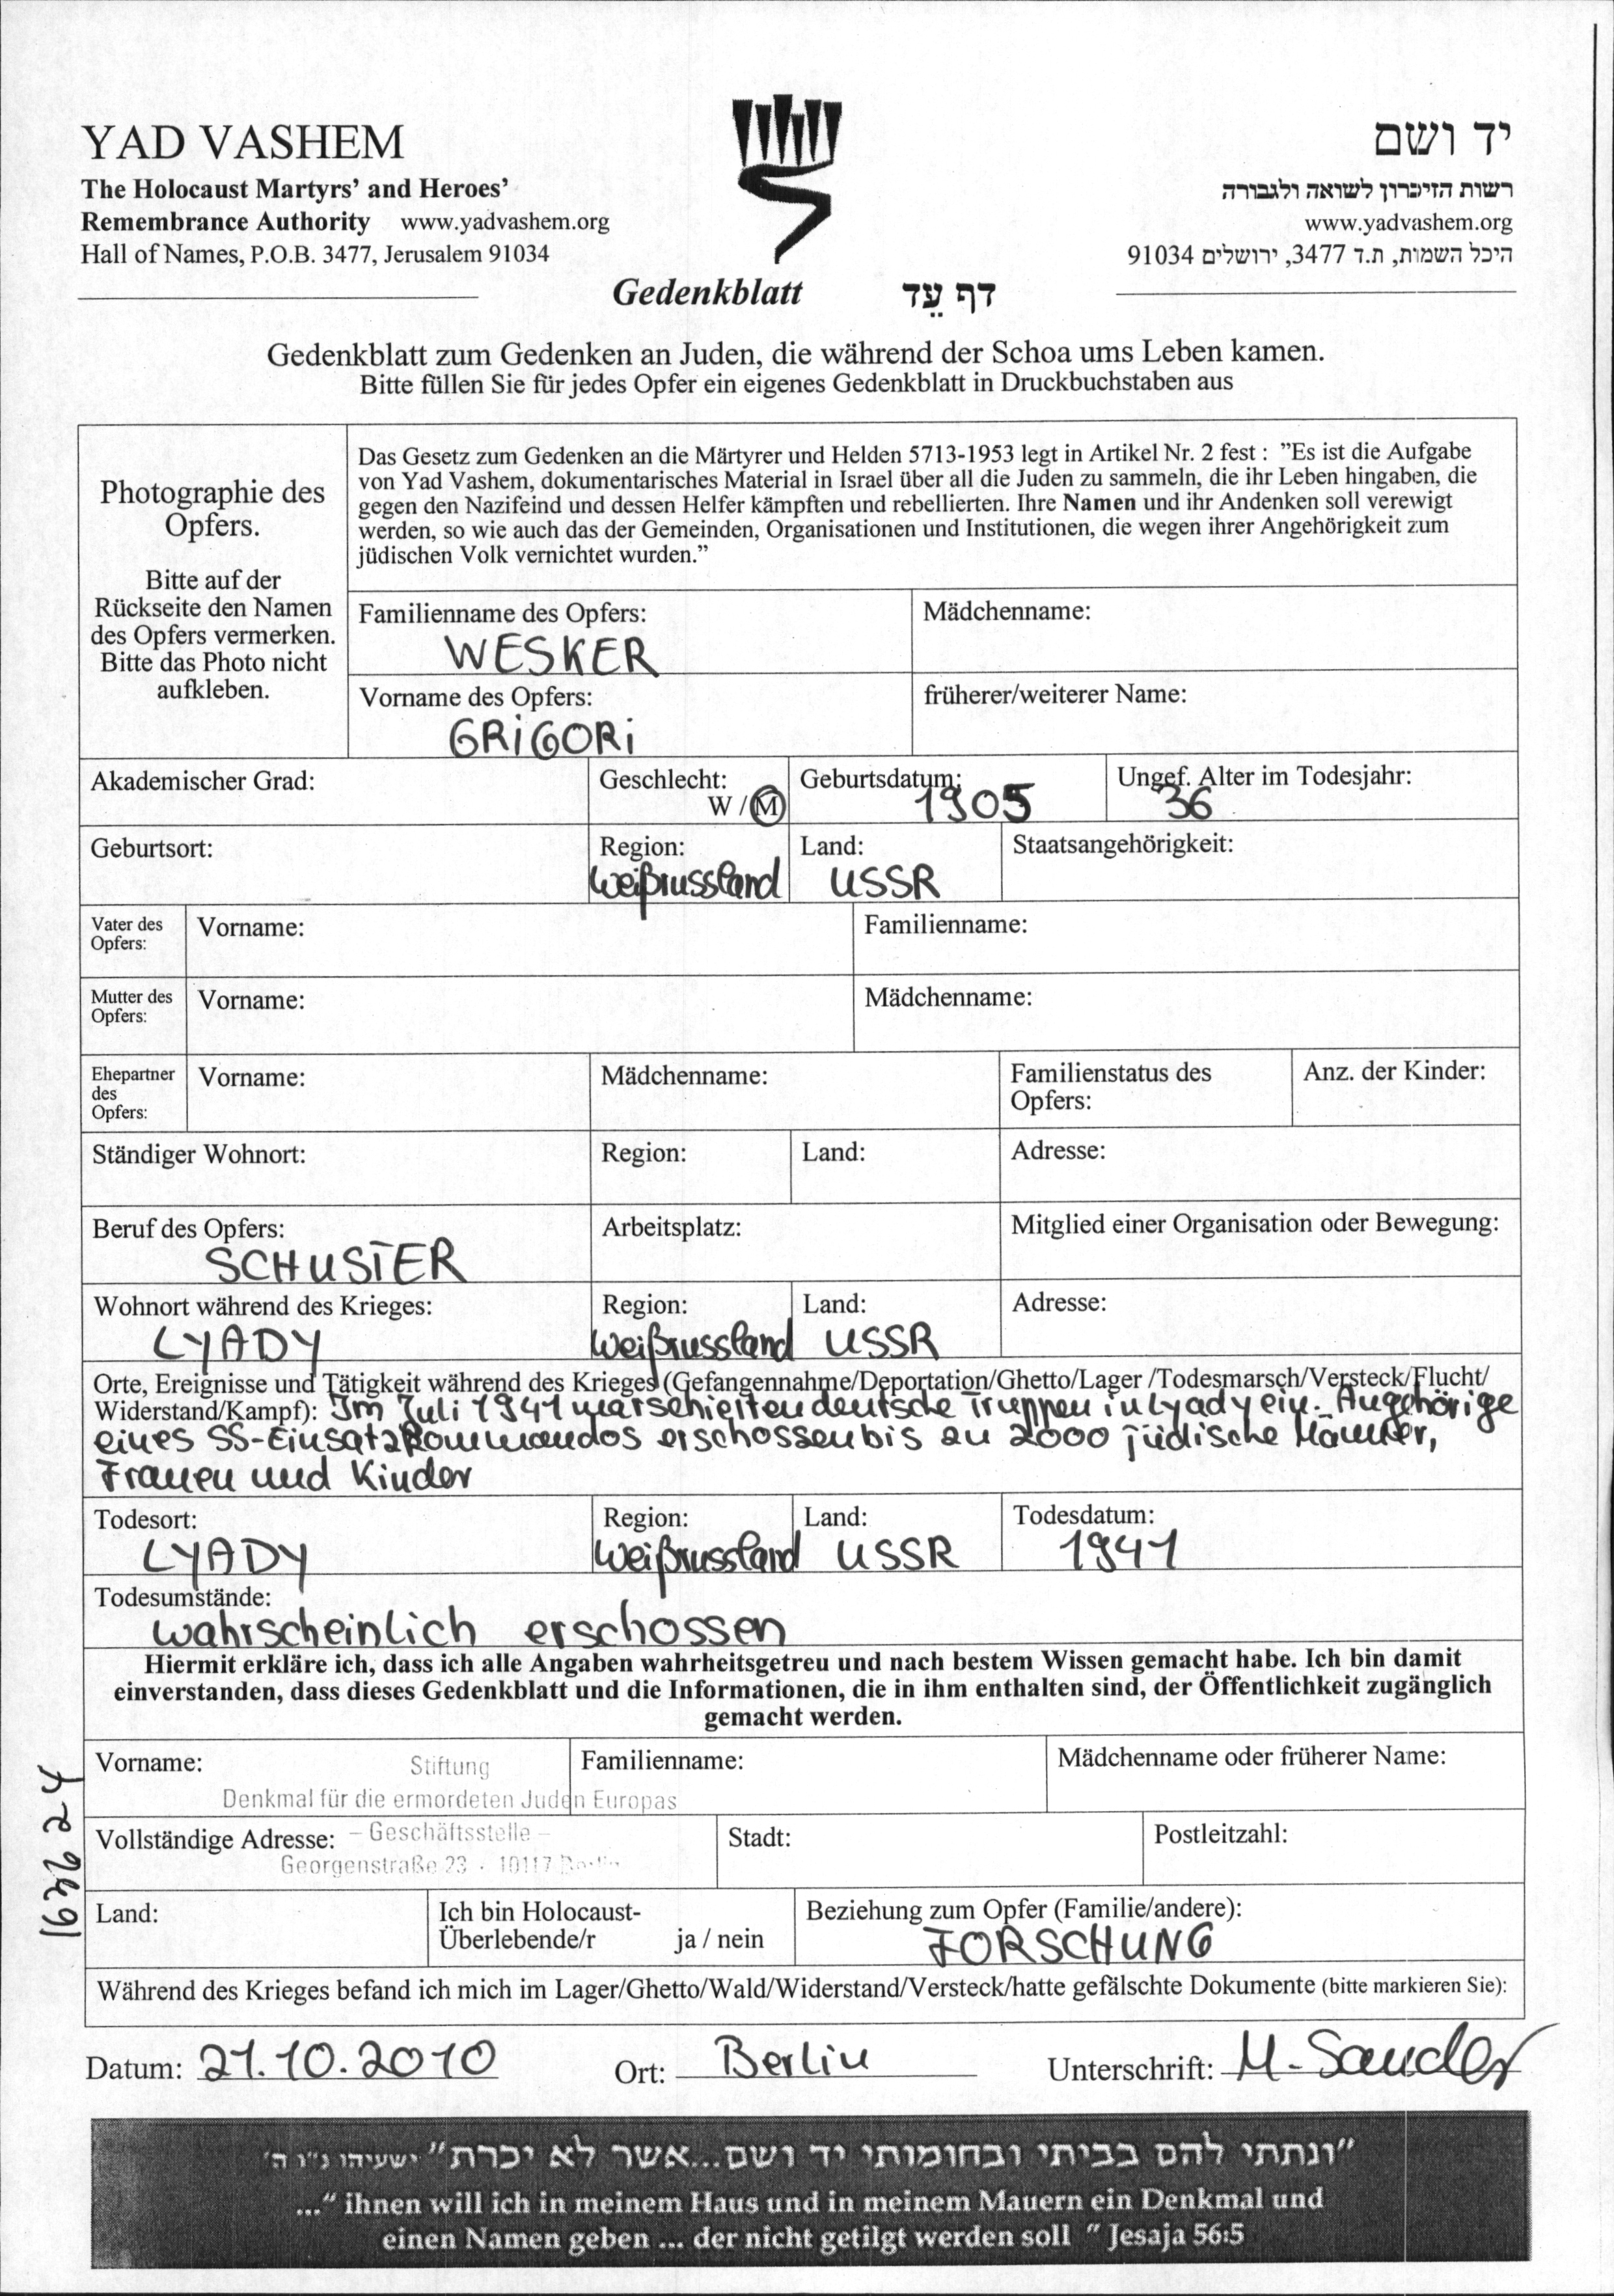 YAD VASHEM
The Holocaust Martyrs' and Heroes'
Remembrance Authority www.yadvashem.org
Hall of Names, P.O.B. 3477, Jerusalem 91034
יד ושם
רשות הזיכרון לשואה ולגבורה
www.yadvashem.org
היכל השמות, ת.ד 3477, ירושלים 91034
Gedenkblatt דף עֵד
Gedenkblatt zum Gedenken an Juden, die während der Schoa ums Leben kamen.
Bitte füllen Sie für jedes Opfer ein eigenes Gedenkblatt in Druckbuchstaben aus
Photographie des
Opfers.
Bitte auf der
Rückseite den Namen
des Opfers vermerken.
Bitte das Photo nicht
aufkleben.
Das Gesetz zum Gedenken an die Märtyrer und Helden 5713-1953 legt in Artikel Nr. 2 fest : "Es ist die Aufgabe
von Yad Vashem, dokumentarisches Material in Israel über all die Juden zu sammeln, die ihr Leben hingaben, die
gegen den Nazifeind und dessen Helfer kämpften und rebellierten. Ihre Namen und ihr Andenken soll verewigt
werden, so wie auch das der Gemeinden, Organisationen und Institutionen, die wegen ihrer Angehörigkeit zum
jüdischen Volk vernichtet wurden."
Familienname des Opfers: Mädchenname:
WESKER
Vorname des Opfers: früherer/weiterer Name:
GRiGORi
Akademischer Grad: Geschlecht: Geburtsdatum: Ungef. Alter im Todesjahr:
W / M 1905 36
Geburtsort: Region: Land: Staatsangehörigkeit:
Weißrussland USSR
Vater des
Opfers:
Vorname: Familienname:
Mutter des
Opfers:
Vorname: Mädchenname:
Ehepartner
des
Opfers:
Vorname: Mädchenname: Familienstatus des
Opfers:
Anz. der Kinder:
Ständiger Wohnort: Region: Land: Adresse:
Beruf des Opfers: Arbeitsplatz: Mitglied einer Organisation oder Bewegung:
SCHUSTER
Wohnort während des Krieges: Region: Land: Adresse:
LYADY Weißrussland USSR
Orte, Ereignisse und Tätigkeit während des Krieges (Gefangennahme/Deportation/Ghetto/Lager /Todesmarsch/Versteck/Flucht/
Widerstand/Kampf): Im Juli 1941 marschierten deutsche Truppen in Lyady ein. Angehörige
eines SS-Einsatzkommandos erschossen bis zu 2000 jüdische Männer,
Frauen und Kinder
Todesort: Region: Land: Todesdatum:
LYADY Weißrussland USSR 1941
Todesumstände:
wahrscheinlich erschossen
Hiermit erkläre ich, dass ich alle Angaben wahrheitsgetreu und nach bestem Wissen gemacht habe. Ich bin damit
einverstanden, dass dieses Gedenkblatt und die Informationen, die in ihm enthalten sind, der Öffentlichkeit zugänglich
gemacht werden.
Vorname: Stiftung Familienname: Mädchenname oder früherer Name:
Denkmal für die ermordeten Juden Europas
Vollständige Adresse: – Geschäftsstelle – Stadt: Postleitzahl:
Georgenstraße 23 · 10117 Berlin
Land: Ich bin Holocaust-
Überlebende/r ja / nein
Beziehung zum Opfer (Familie/andere):
FORSCHUNG
Während des Krieges befand ich mich im Lager/Ghetto/Wald/Widerstand/Versteck/hatte gefälschte Dokumente (bitte markieren Sie):
Datum: 21.10.2010 Ort: Berlin Unterschrift: M. Sander
"ונתתי להם בביתי ובחומותי יד ושם...אשר לא יכרת" ישעיהו נ"ו ה'
..." ihnen will ich in meinem Haus und in meinem Mauern ein Denkmal und
einen Namen geben ... der nicht getilgt werden soll " Jesaja 56:5